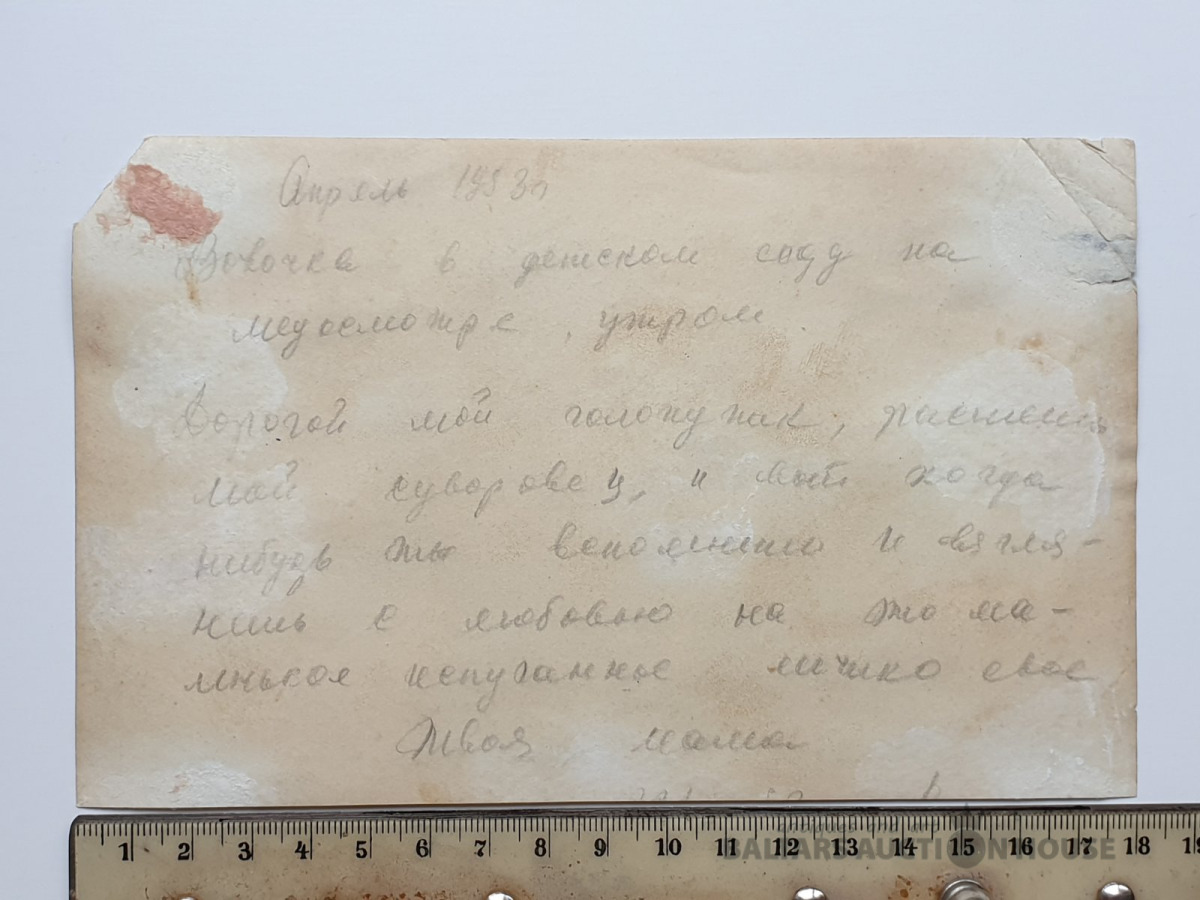 Апрель 1953г
Вовочка в детском саду на
медосмотре, утром.
Дорогой мой голопупик,
мой суворовец, и когда
нибудь ты вспомнишь и взгля-
нешь с любовью на это ма-
ленькое испуганное личико свое
Твоя мама
1 2 3 4 5 6 7 8 9 10 11 12 13 14 15 16 17 18 19
BALTARS AUCTION HOUSE